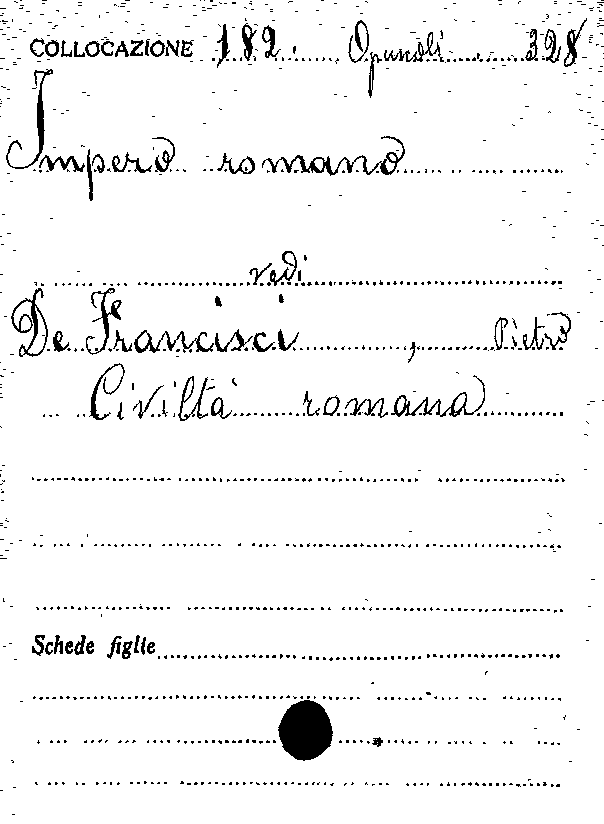 COLLOCAZIONE 182. Opuscoli. 328
Impero romano
vedi
De Francisci, Pietro
Civiltà romana
Schede figlie